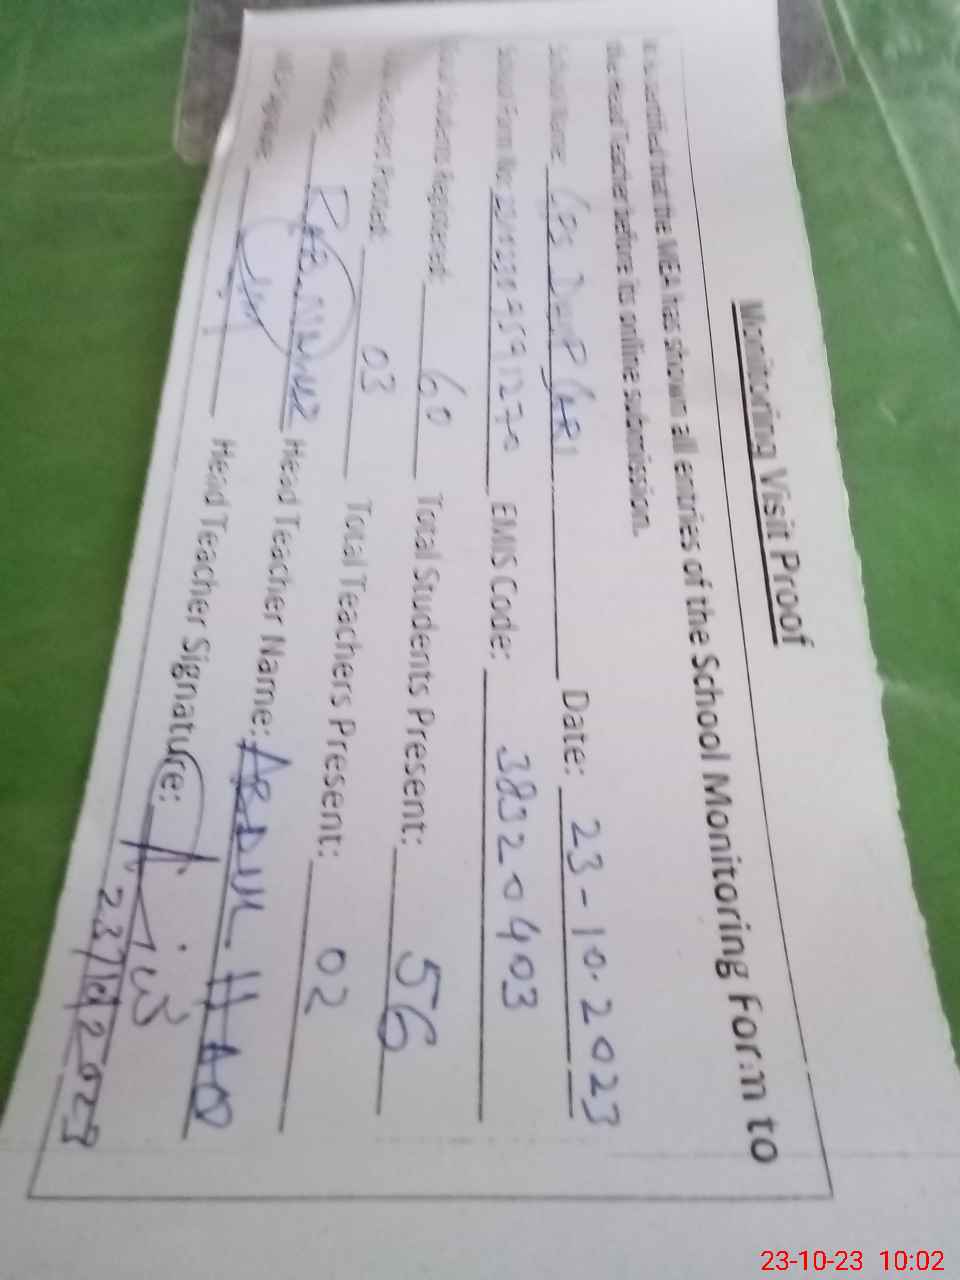 Monitoring Visit Proof
It is certified that the MEA has shown all entries of the School Monitoring Form to
the Head Teacher before its online submission.
School Name: Date: 23-10.2023
School Form No: EMIS Code: 38320403
Total Students Registered: 60 Total Students Present: 56
Total Teachers Posted: 03 Total Teachers Present: 02
MEA Name: Head Teacher Name: ABDUL
MEA Signature: Head Teacher Signature:
23/10/2023
23-10-23 10:02